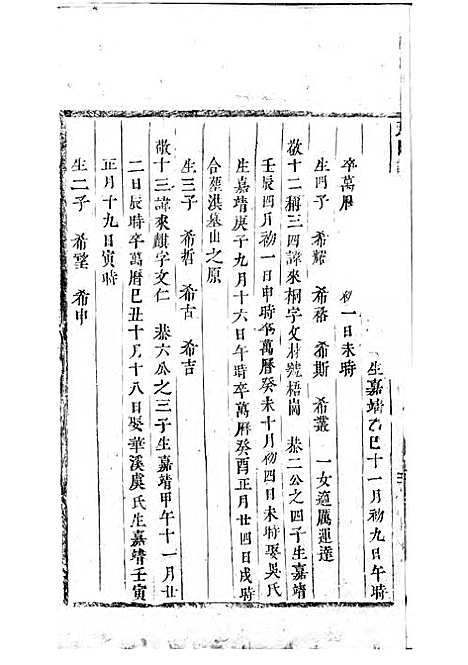 生嘉靖乙巳十一月初九日午時
卒萬曆 初一日未時
生四子 希耀 希 希斯 希叢 一女適厲運達
敬十二稱三四諱來桐字文材號梧岡 恭二公之四子生嘉靖
壬辰四月初一日申時卒萬曆癸未十月初四日未時娶吳氏
生嘉靖庚子九月十六日午時卒萬曆癸酉正月廿四日戌時
合塟淇墓山之原
生三子 希哲 希古 希吉
敬十三諱來 字文仁 恭六公之三子生嘉靖甲午十一月廿
二日辰時卒萬曆巳丑十月十八日娶華溪虞氏生嘉靖壬寅
正月十九日寅時
生二子 希 希申